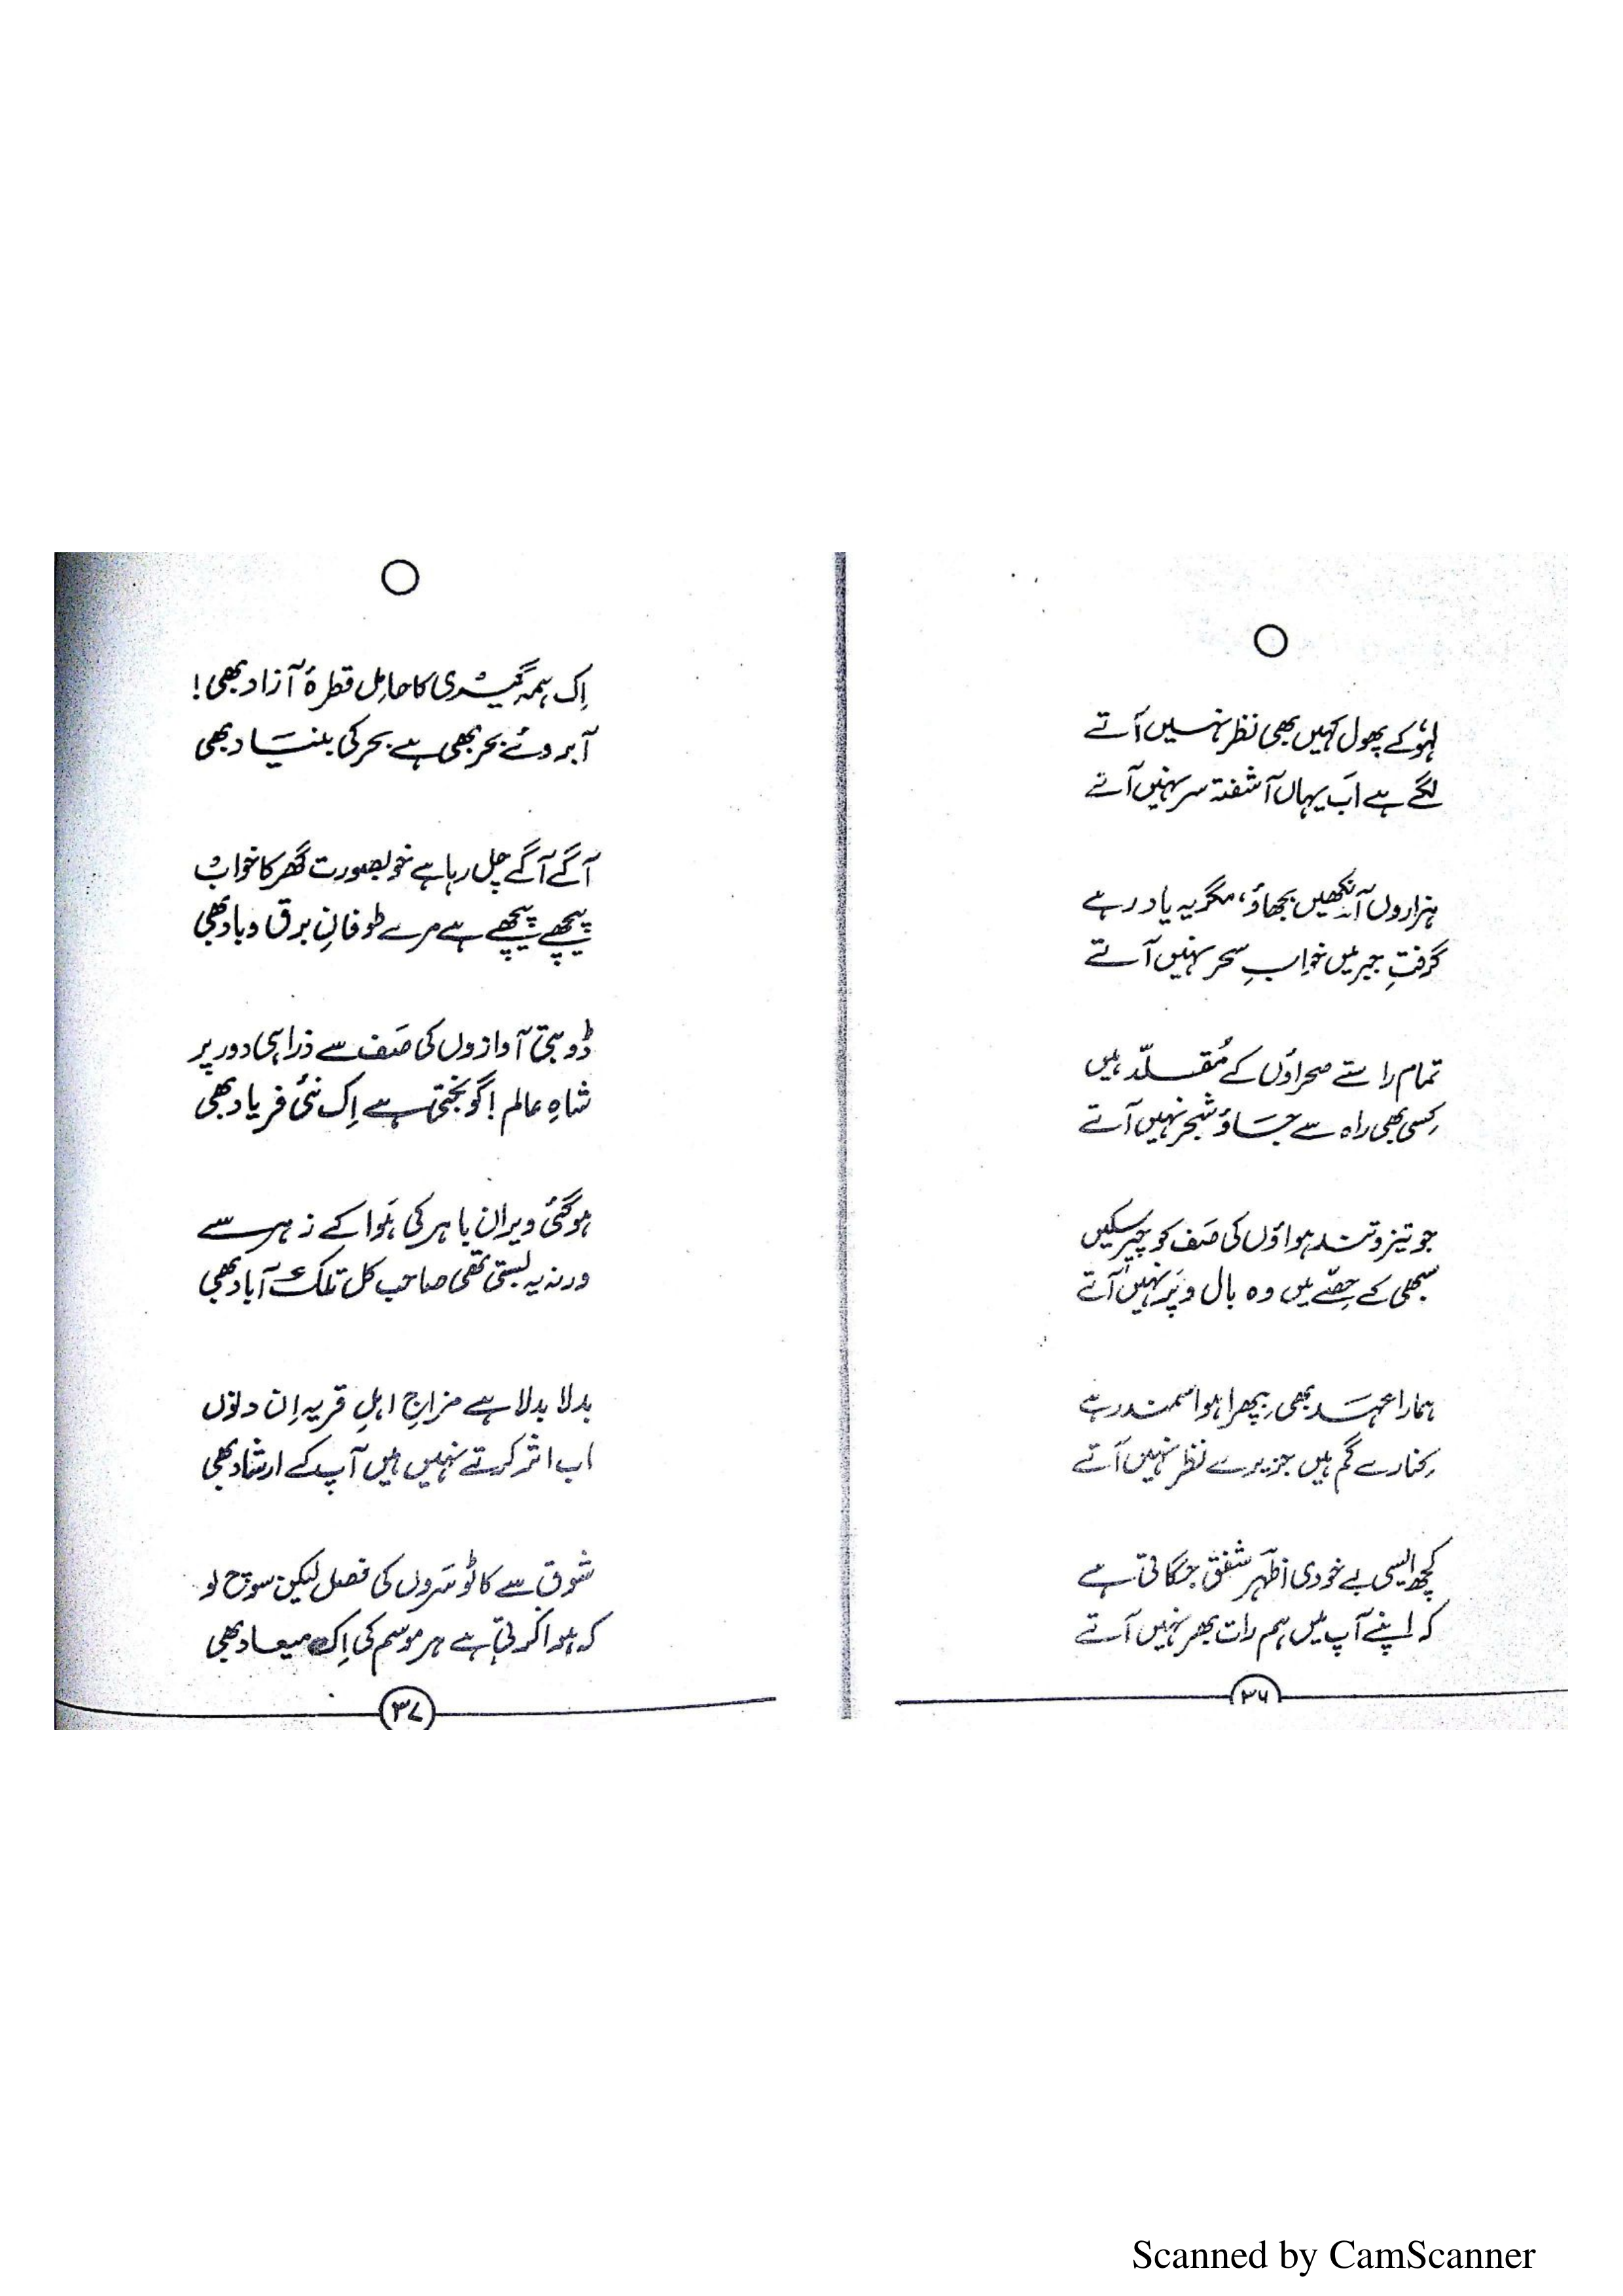 لہو کے پھول کہیں بھی نظر نہیں آتے
لگے ہے اب یہاں آشفتہ سر نہیں آتے
ہزاروں آنکھیں بچھاؤ، مگر یہ یاد رہے
گرفتِ جبر میں خوابِ سحر نہیں آتے
تمام راستے صحراؤں کے مُقلّد ہیں
کِسی بھی راہ سے جاؤ شجر نہیں آتے
جو تیز و تند ہواؤں کی صَف کو چیر سکیں
سبھی کے حِصّے میں وہ بال و پَر نہیں آتے
ہمارا عہد بھی بِپھرا ہوا سمندر ہے
کِنارے گم ہیں جزیرے نظر نہیں آتے
کچھ ایسی بے خودی اظہر شفق جگاتی ہے
کہ اپنے آپ میں ہم رات بھر نہیں آتے
۳۶
اِک ہمہ گیری کا حامِل قطرۂ آزاد بھی!
آبروئے بحر بھی ہے بحر کی بنیاد بھی
آگے آگے چل رہا ہے خوبصورت گھر کا خواب
پیچھے پیچھے ہے مرے طوفانِ برق و باد بھی
ڈوبتی آوازوں کی صَف سے ذرا ہی دور پر
شاہِ عالم! گونجتی ہے اِک نئی فریاد بھی
ہوگئی ویران باہر کی ہَوا کے زہر سے
ورنہ یہ بستی تھی صاحب کل تلک آباد بھی
بدلا بدلا ہے مزاجِ اہلِ قریہ اِن دنوں
اب اثر کرتے نہیں ہیں آپ کے ارشاد بھی
شوق سے کاٹو سَروں کی فصل لیکن سوچ لو
کہ ہوا کرتی ہے ہر موسم کی اِک میعاد بھی
۳۷
Scanned by CamScanner